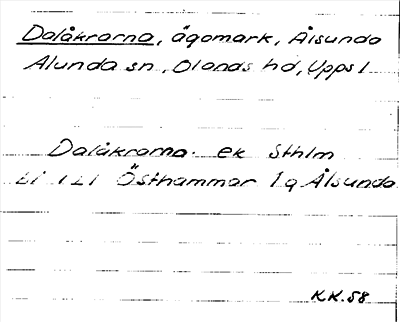 Dalåkrarna, ägomark, Ålsunda
Alunda sn, Olands hd, Uppsl
Dalåkrarna. ek Sthlm
Östhammar 1q Ålsunda
KK.58